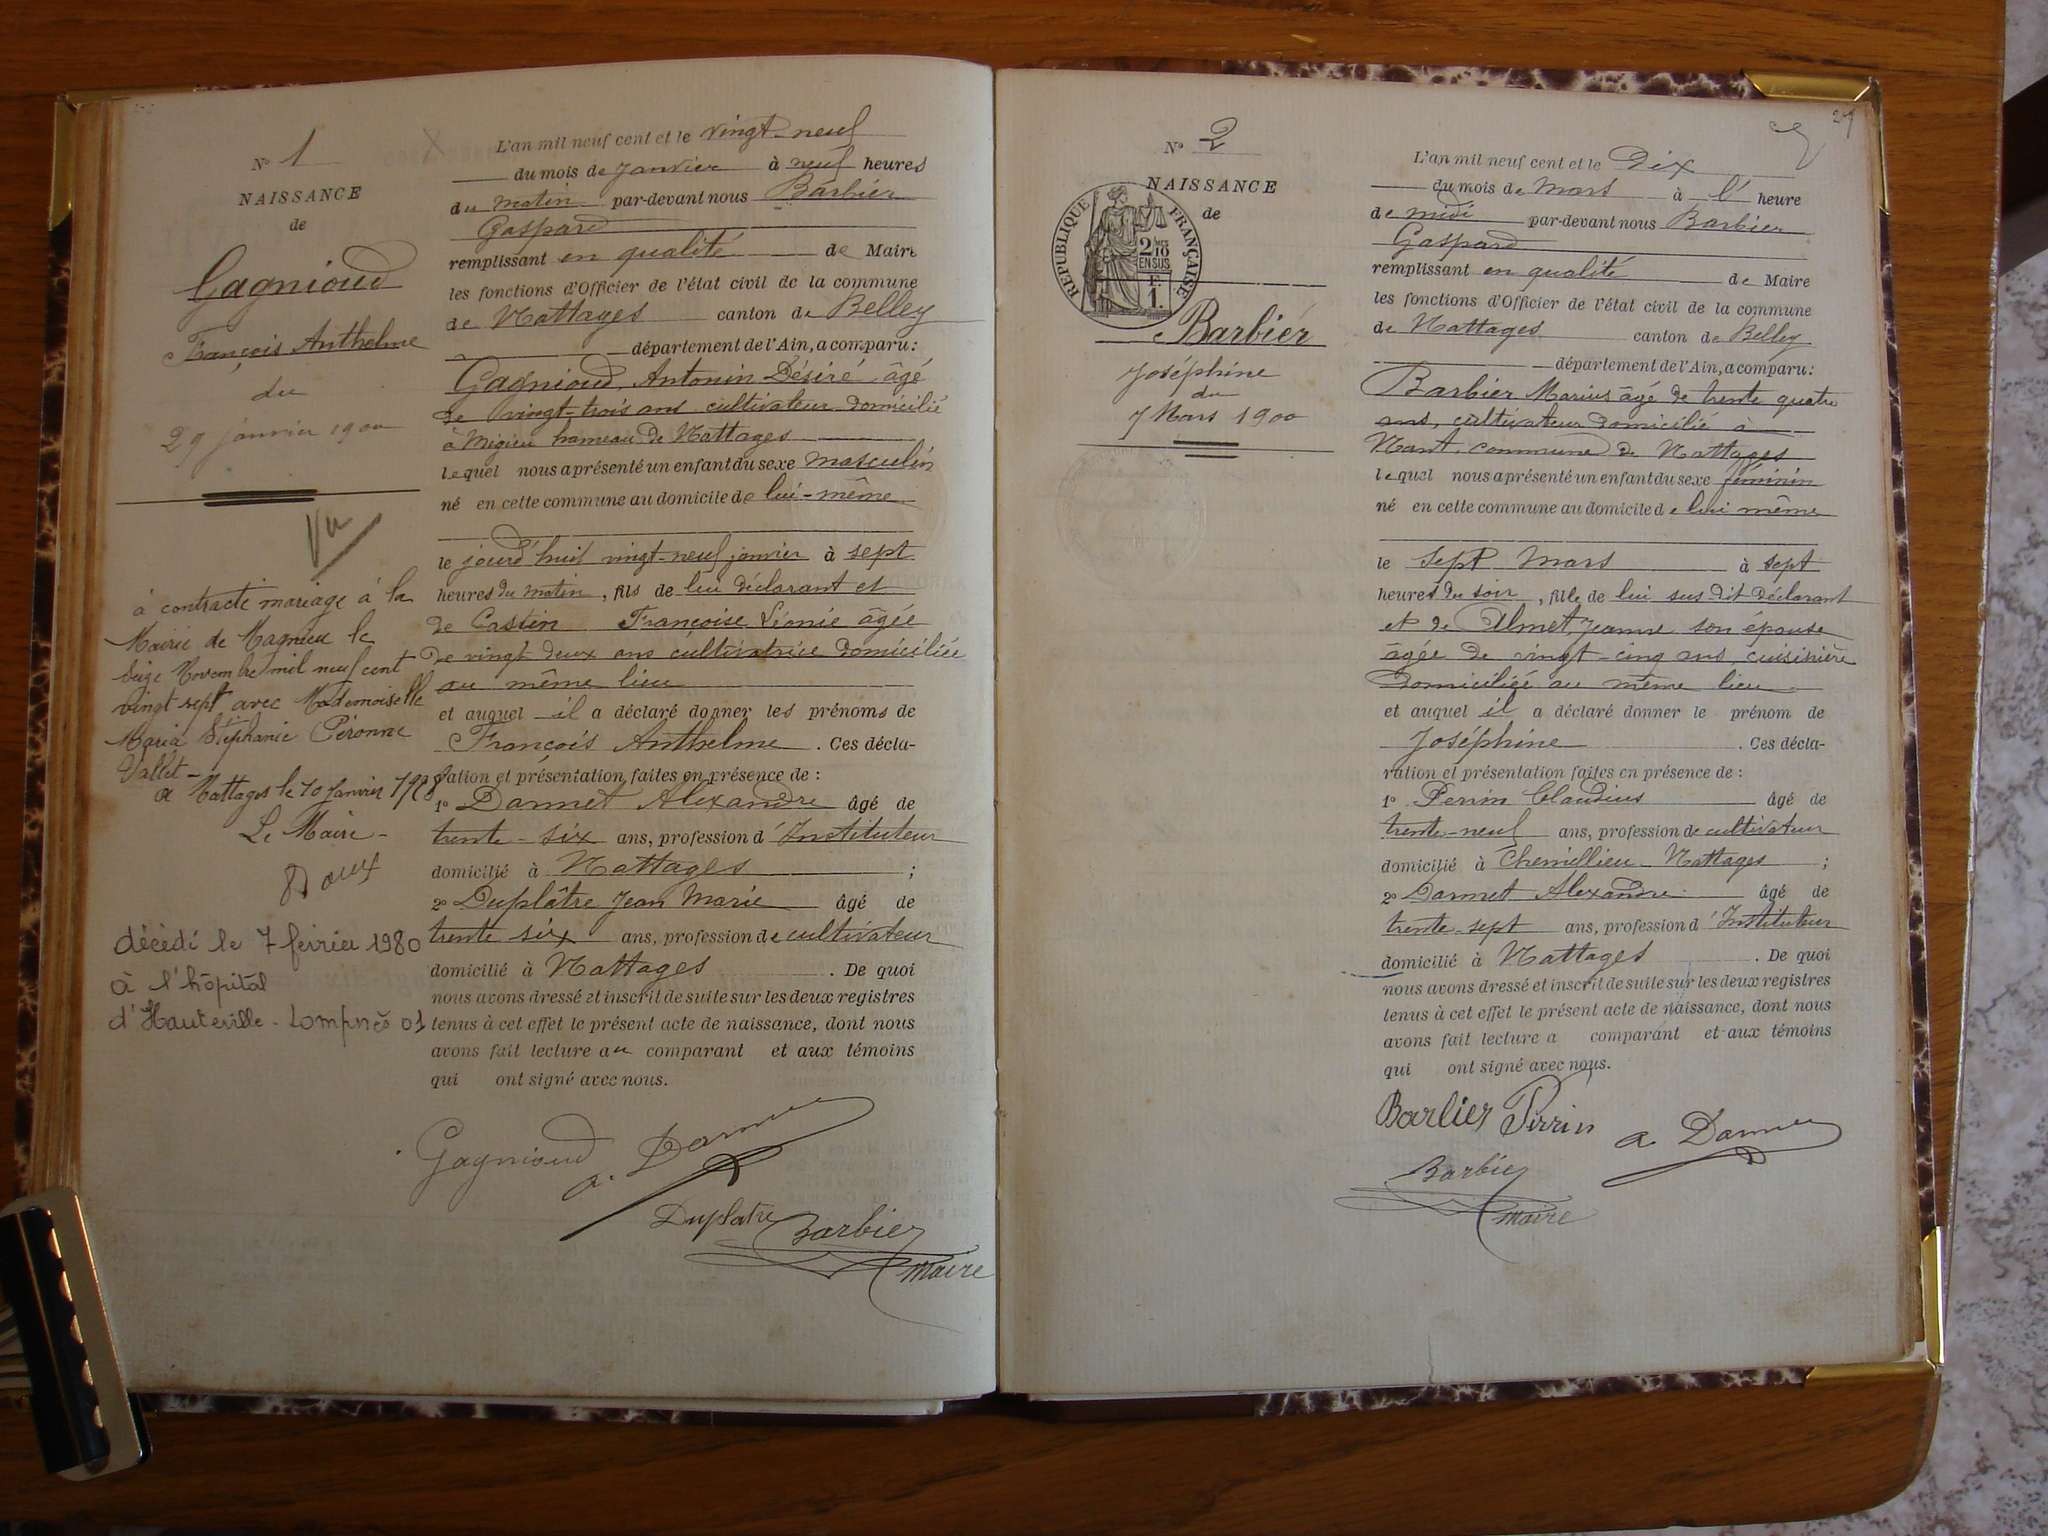 N° 1
NAISSANCE
de
Gagnioud
François Anthelme
du
29 janvier 1900
Vu
à contracté mariage à la
Mairie de Magnieu le
seize Novembre mil neuf cent
vingt sept avec Mademoiselle
Maria Stéphanie Péronne
Vallet -
a Nattages le 10 Janvier 1928
Le Maire -
décédé le 7 février 1980
à l'hôpital
d'Hauteville - Lompnès 01
L'an mil neuf cent et le vingt-neuf
du mois de janvier à neuf heures
du matin par-devant nous Barbier
Gaspard
remplissant en qualité de Maire
les fonctions d'Officier de l'état civil de la commune
de Nattages canton de Belley
département de l'Ain, a comparu :
Gagnioud, Antonin Désiré âgé
de vingt-trois ans cultivateur domicilié
à Mogieu hameau de Nattages
lequel nous a présenté un enfant du sexe masculin
né en cette commune au domicile de lui-même
le jourd'hui vingt-neuf janvier à sept
heures du matin, fils de lui déclarant et
de Castin Françoise Léonie âgée
de vingt deux ans cultivatrice domiciliée
au même lieu
et auquel il a déclaré donner les prénoms de
François Anthelme. Ces décla-
ration et présentation faites en présence de :
1° Dannet Alexandre âgé de
trente-six ans, profession d'Instituteur
domicilié à Nattages ;
2° Duplâtre Jean Marie âgé de
trente six ans, profession de cultivateur
domicilié à Nattages. De quoi
nous avons dressé et inscrit de suite sur les deux registres
tenus à cet effet le présent acte de naissance, dont nous
avons fait lecture au comparant et aux témoins
qui ont signé avec nous.
Gagnioud a. Dannet
Duplatre Barbier
maire
27
N° 2
NAISSANCE
de
RÉPUBLIQUE FRANÇAISE
2/10
EN SUS
F.
1.
Barbier
Joséphine
du
7 Mars 1900
L'an mil neuf cent et le Dix
du mois de Mars à l' heure
de midi par-devant nous Barbier
Gaspard
remplissant en qualité de Maire
les fonctions d'Officier de l'état civil de la commune
de Nattages canton de Belley
département de l'Ain, a comparu :
Barbier Marius âgé de trente quatre
ans, cultivateur domicilié à
Nant, commune de Nattages
lequel nous a présenté un enfant du sexe féminin
né en cette commune au domicile de lui même
le sept Mars à sept
heures du soir, fille de lui sus dit déclarant
et de Ulmet, Jeanne son épouse
agée de vingt-cinq ans, cuisinière
domiciliée au même lieu
et auquel il a déclaré donner le prénom de
Joséphine. Ces décla-
ration et présentation faites en présence de :
1° Perrin Claudius âgé de
trente-neuf ans, profession de cultivateur
domicilié à Chemillieu Nattages ;
2° Dannet Alexandre âgé de
trente-sept ans, profession d'Instituteur
domicilié à Nattages. De quoi
nous avons dressé et inscrit de suite sur les deux registres
tenus à cet effet le présent acte de naissance, dont nous
avons fait lecture a comparant et aux témoins
qui ont signé avec nous.
Barbier Perrin a Dannet
Barbier
maire